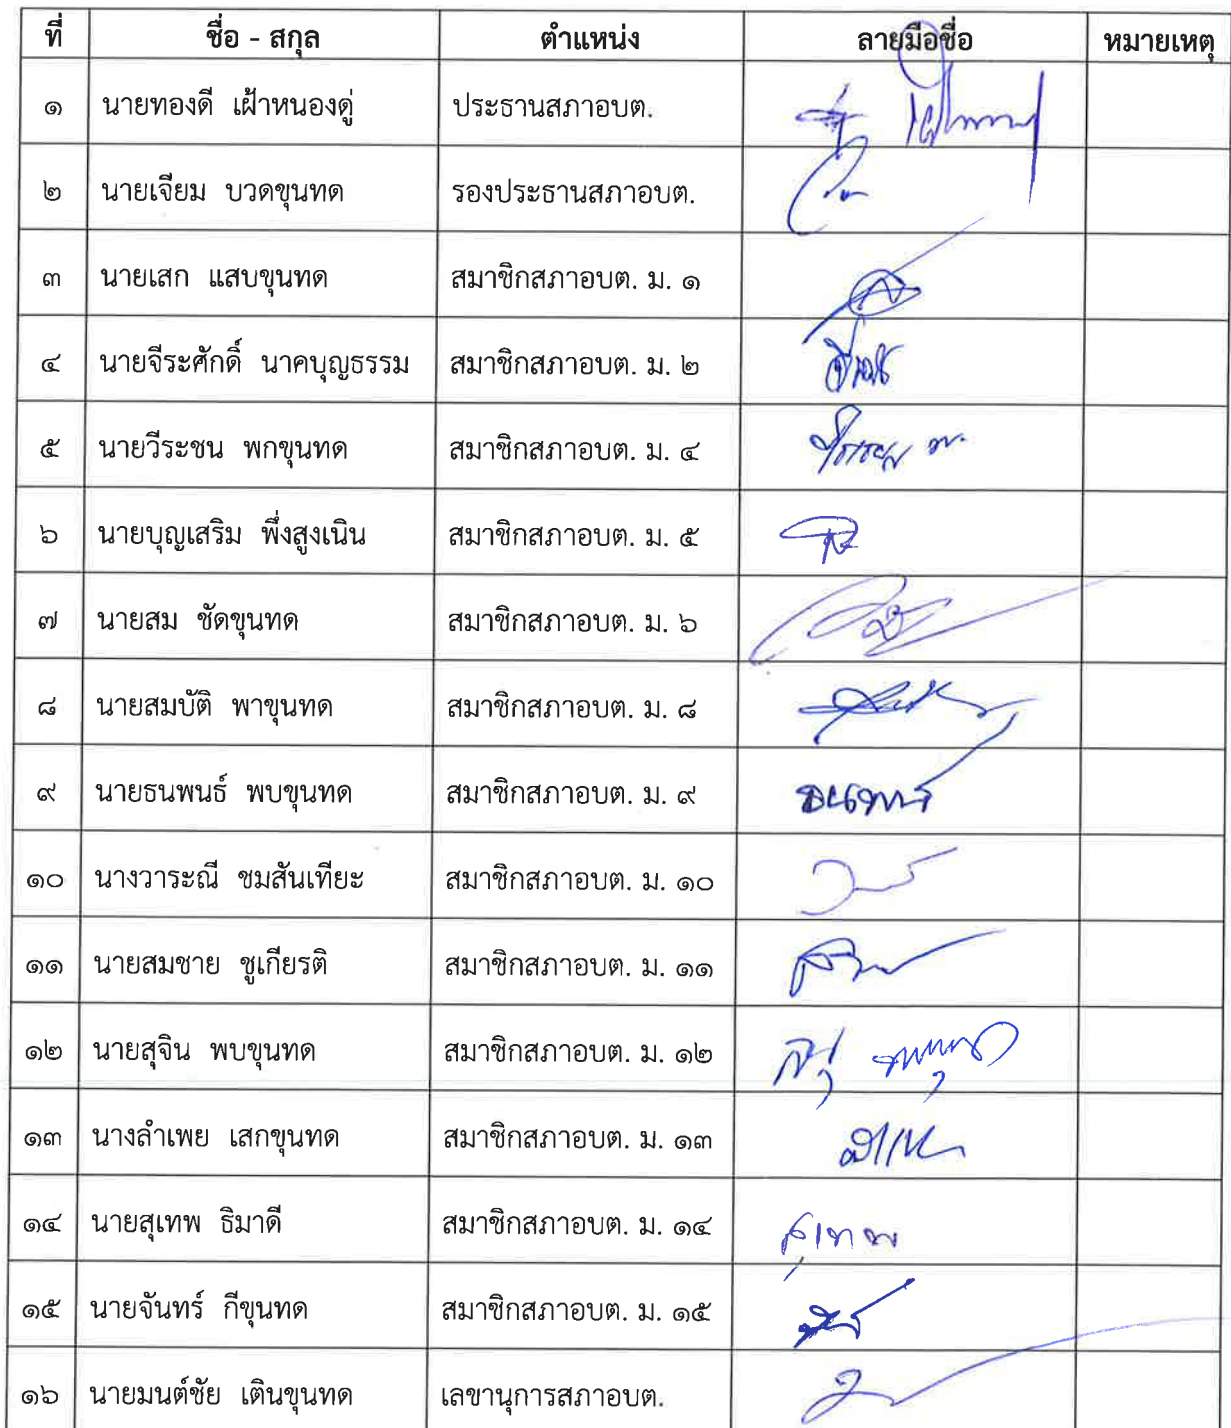 ที่ ชื่อ - สกุล ตำแหน่ง ลายมือชื่อ หมายเหตุ
๑ นายทองดี เฝ้าหนองดู่ ประธานสภาอบต.
๒ นายเจียม บวดขุนทด รองประธานสภาอบต.
๓ นายเสก แสบขุนทด สมาชิกสภาอบต. ม. ๑
๔ นายจีระศักดิ์ นาคบุญธรรม สมาชิกสภาอบต. ม. ๒
๕ นายวีระชน พกขุนทด สมาชิกสภาอบต. ม. ๔
๖ นายบุญเสริม พึ่งสูงเนิน สมาชิกสภาอบต. ม. ๕
๗ นายสม ชัดขุนทด สมาชิกสภาอบต. ม. ๖
๘ นายสมบัติ พาขุนทด สมาชิกสภาอบต. ม. ๘
๙ นายธนพนธ์ พบขุนทด สมาชิกสภาอบต. ม. ๙
๑๐ นางวาระณี ชมสันเทียะ สมาชิกสภาอบต. ม. ๑๐
๑๑ นายสมชาย ชูเกียรติ สมาชิกสภาอบต. ม. ๑๑
๑๒ นายสุจิน พบขุนทด สมาชิกสภาอบต. ม. ๑๒
๑๓ นางลำเพย เสกขุนทด สมาชิกสภาอบต. ม. ๑๓
๑๔ นายสุเทพ ธิมาดี สมาชิกสภาอบต. ม. ๑๔ สุเทพ
๑๕ นายจันทร์ กีขุนทด สมาชิกสภาอบต. ม. ๑๕
๑๖ นายมนต์ชัย เตินขุนทด เลขานุการสภาอบต.